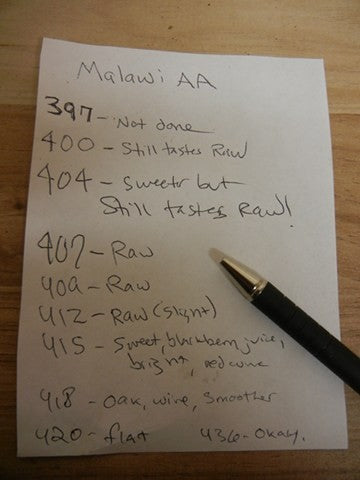 Malawi AA
397 - Not done
400 - Still tastes Raw
404 - Sweeter but
Still tastes Raw!
407 - Raw
409 - Raw
412 - Raw (slight)
415 - Sweet, blackberry, juice,
bright, red wine
418 - Oak, wine, smoother
420 - flat 436 - Okay.